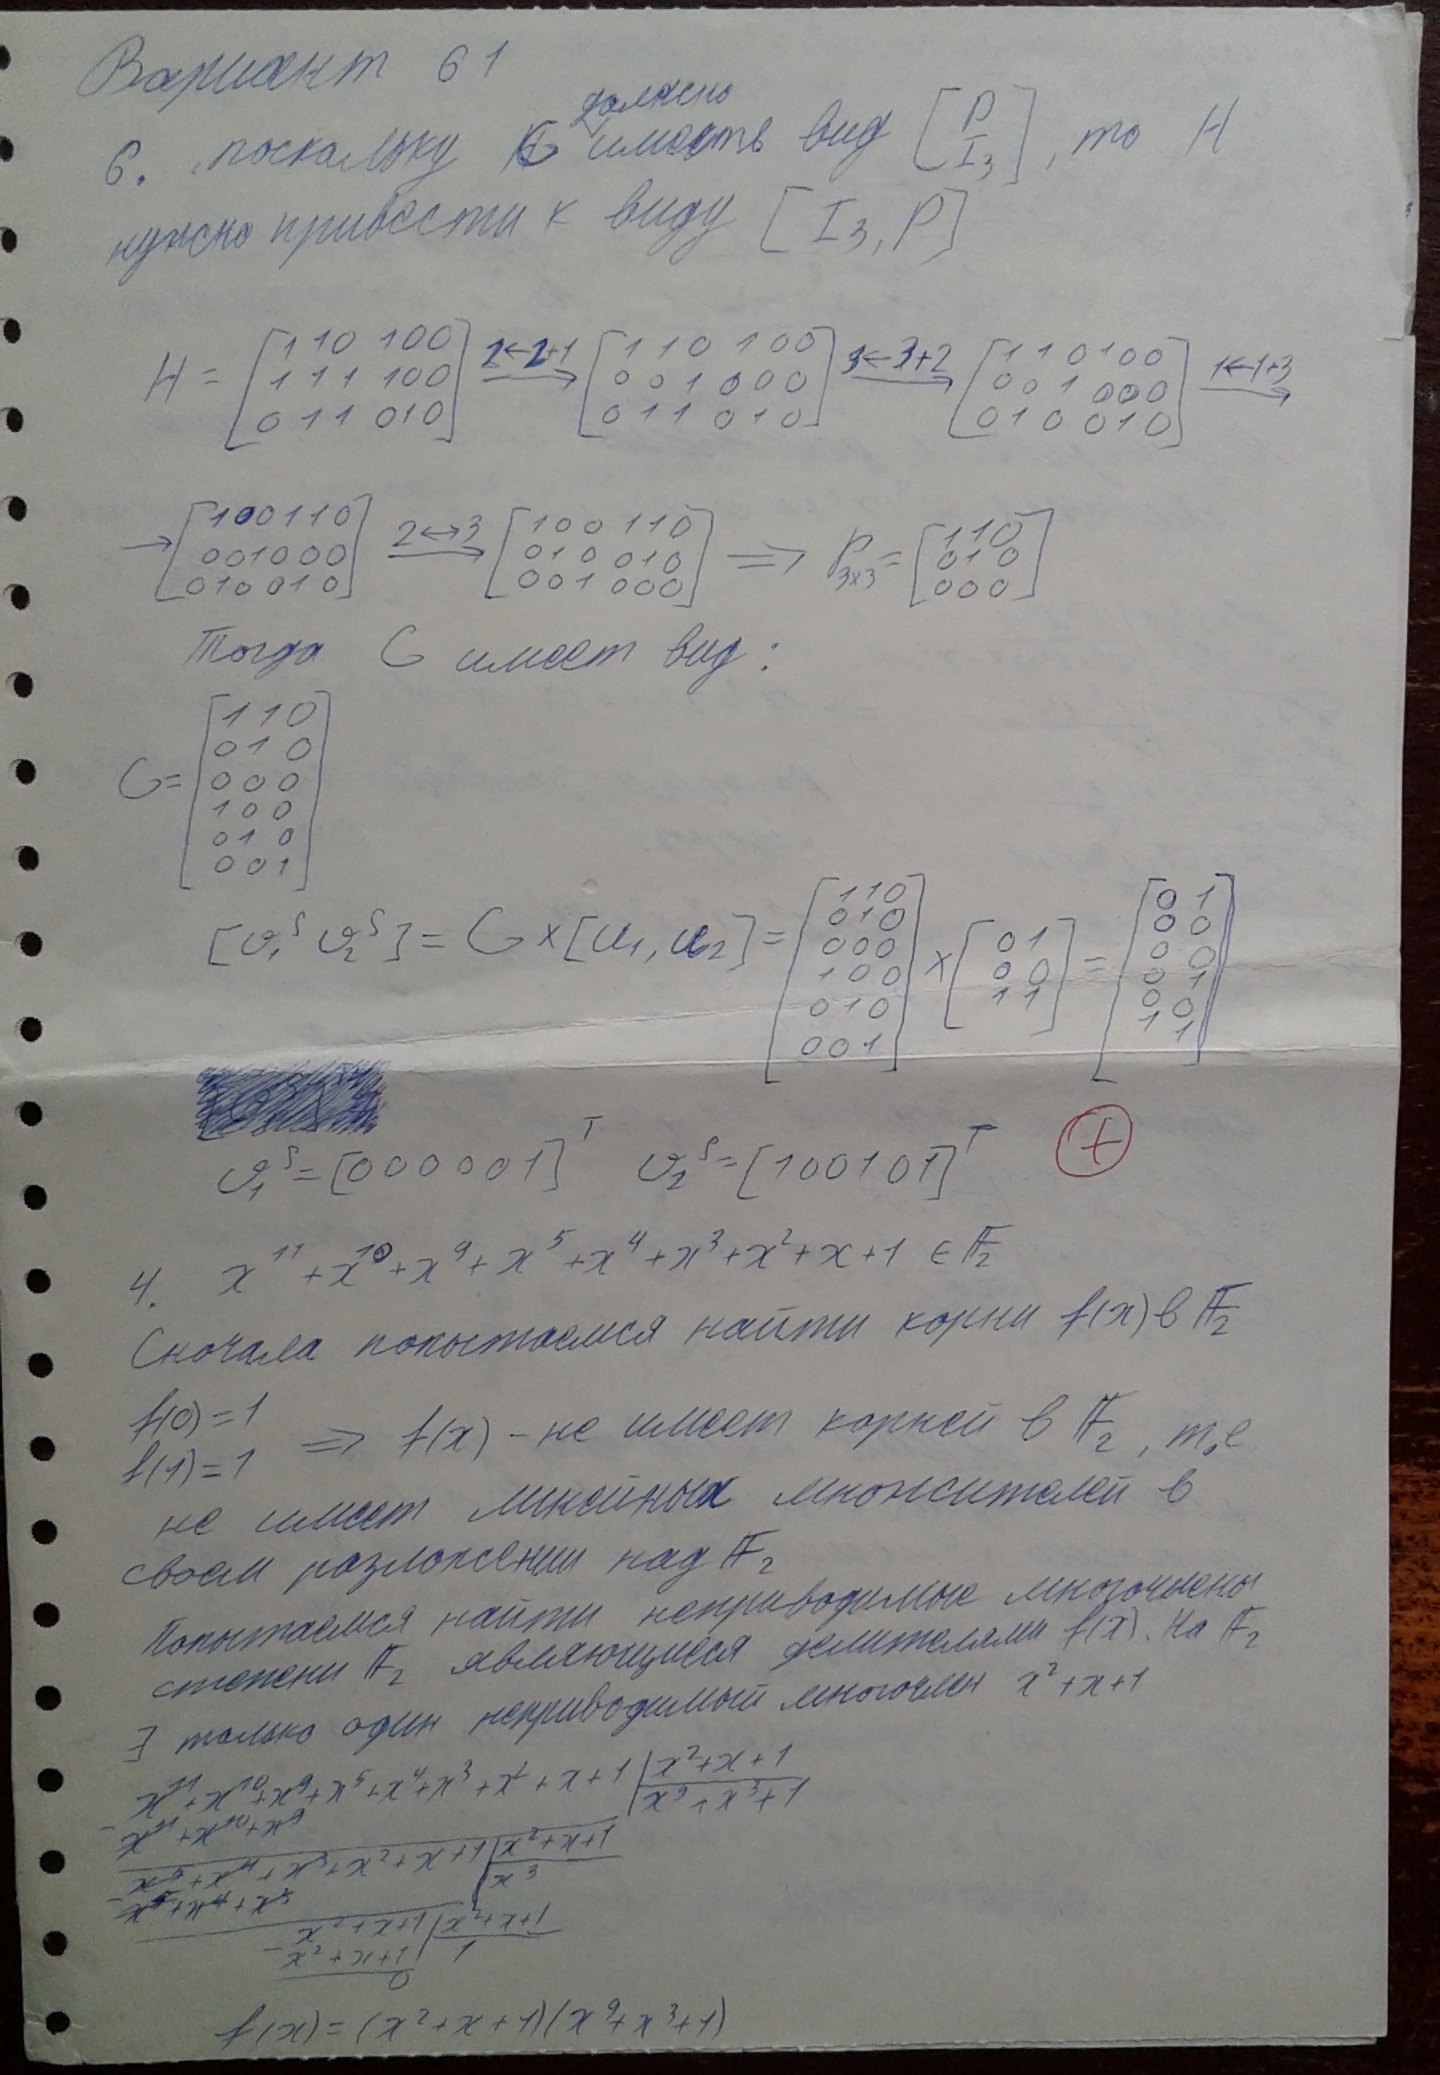 Вариант 61
6. поскольку G должно иметь вид [P I₃], то H
нужно привести к виду [I₃, P]
H = [110100 111100 011010] 2←2+1 [110100 001000 011010] 3←3+2 [110100 001000 010010] 1←1+3
→ [100110 001000 010010] 2↔3 [100110 010010 001000] ⟹ P₃ₓ₃ = [110 010 000]
Тогда G имеет вид:
G = [110 010 000 100 010 001]
[υ₁ˢ υ₂ˢ] = G × [u₁, u₂] = [110 010 000 100 010 001] × [01 00 11] = [01 00 00 01 00 11]
υ₁ˢ = [000001]ᵀ υ₂ˢ = [100101]ᵀ +
4. x¹¹ + x¹⁰ + x⁹ + x⁵ + x⁴ + x³ + x² + x + 1 ∈ 𝔽₂
Сначала попытаемся найти корни f(x) в 𝔽₂
f(0) = 1
f(1) = 1 ⟹ f(x) – не имеет корней в 𝔽₂, т.е
не имеет линейных множителей в
своем разложении над 𝔽₂
Попытаемся найти неприводимые многочлены
степени 𝔽₂ являющиеся делителями f(x). На 𝔽₂
∃ только один неприводимый многочлен x² + x + 1
x¹¹ + x¹⁰ + x⁹ + x⁵ + x⁴ + x³ + x² + x + 1 | x² + x + 1
– x¹¹ + x¹⁰ + x⁹ | x⁹ + x³ + 1
x⁵ + x⁴ + x³ + x² + x + 1 | x² + x + 1
– x⁵ + x⁴ + x³ | x³
x² + x + 1 | x² + x + 1
– x² + x + 1 | 1
0
f(x) = (x² + x + 1)(x⁹ + x³ + 1)